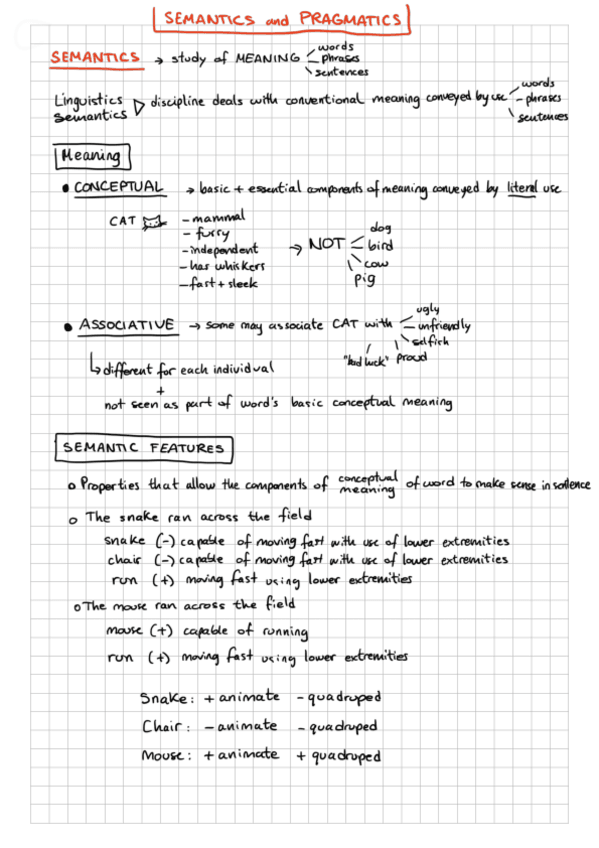 SEMANTICS and PRAGMATICS
SEMANTICS → study of MEANING words
phrases
sentences
Linguistics
Semantics
discipline deals with conventional meaning conveyed by use words
phrases
sentences
Meaning
• CONCEPTUAL → basic + essential components of meaning conveyed by literal use
CAT
- mammal
- furry
- independent
- has whiskers
- fast + sleek
→ NOT
dog
bird
cow
pig
• ASSOCIATIVE → some may associate CAT with
ugly
unfriendly
selfish
proud
"bad luck"
↳ different for each individual
+
not seen as part of word's basic conceptual meaning
SEMANTIC FEATURES
o Properties that allow the components of conceptual meaning of word to make sense in sentence
o The snake ran across the field
snake (-) capable of moving fast with use of lower extremities
chair (-) capable of moving fast with use of lower extremities
run (+) moving fast using lower extremities
o The mouse ran across the field
mouse (+) capable of running
run (+) moving fast using lower extremities
Snake: + animate - quadruped
Chair: - animate - quadruped
Mouse: + animate + quadruped